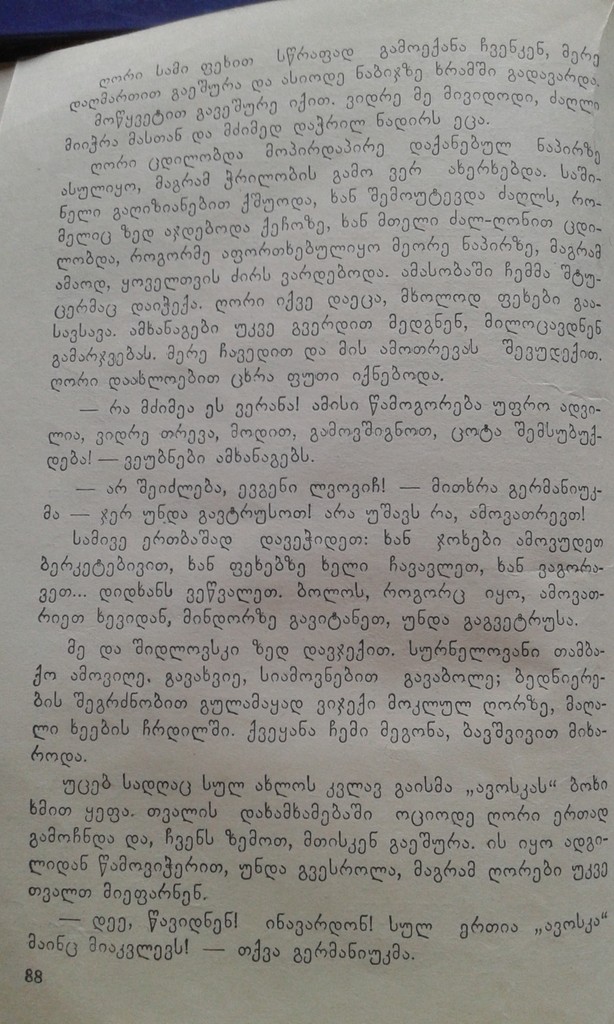 ღორი სამი ფეხით სწრაფად გამოექანა ჩვენკენ, მერე
დაღმართით გაეშურა და ასიოდე ნაბიჯზე ხრამში გადავარდა.
მოწყვეტით გავეშურე იქით. ვიდრე მე მივიდოდი, ძაღლი
მიიჭრა მასთან და მძიმედ დაჭრილ ნადირს ეცა.
ღორი ცდილობდა მოპირდაპირე დაქანებულ ნაპირზე
ასულიყო, მაგრამ ჭრილობის გამო ვერ ახერხებდა. საში-
ნელი გაღიზიანებით ქშუოდა, ხან შემოუტევდა ძაღლს, რო-
მელიც ზედ აჯდებოდა ქეჩოზე, ხან მთელი ძალ-ღონით ცდი-
ლობდა, როგორმე აფორთხებულიყო მეორე ნაპირზე, მაგრამ
ამაოდ, ყოველთვის ძირს ვარდებოდა. ამასობაში ჩემმა შტუ-
ცერმაც დაიჭექა. ღორი იქვე დაეცა, მხოლოდ ფეხები გაა-
სავსავა. ამხანაგები უკვე გვერდით მედგნენ, მილოცავდნენ
გამარჯვებას. მერე ჩავედით და მის ამოთრევას შევუდექით.
ღორი დაახლოებით ცხრა ფუთი იქნებოდა.
— რა მძიმეა ეს ვერანა! ამისი წამოგორება უფრო ადვი-
ლია, ვიდრე თრევა, მოდით, გამოვშიგნოთ, ცოტა შემსუბუქ-
დება! — ვეუბნები ამხანაგებს.
— არ შეიძლება, ევგენი ლვოვიჩ! — მითხრა გერმანიუკ-
მა — ჯერ უნდა გავტრუსოთ! არა უშავს რა, ამოვათრევთ!
სამივე ერთბაშად დავეჭიდეთ: ხან ჯოხები ამოვუდეთ
ბერკეტებივით, ხან ფეხებზე ხელი ჩავავლეთ, ხან ვაგორა-
ვეთ... დიდხანს ვეწვალეთ. ბოლოს, როგორც იყო, ამოვათ-
რიეთ ხევიდან, მინდორზე გავიტანეთ, უნდა გაგვეტრუსა.
მე და შიდლოვსკი ზედ დავჯექით. სურნელოვანი თამბა-
ქო ამოვიღე, გავახვიე, სიამოვნებით გავაბოლე; ბედნიერე-
ბის შეგრძნობით გულამაყად ვიჯექი მოკლულ ღორზე, მაღა-
ლი ხეების ჩრდილში. ქვეყანა ჩემი მეგონა, ბავშვივით მიხა-
როდა.
უცებ სადღაც სულ ახლოს კვლავ გაისმა „ავოსკას“ ბოხი
ხმით ყეფა. თვალის დახამხამებაში ოციოდე ღორი ერთად
გამოჩნდა და, ჩვენს ზემოთ, მთისკენ გაეშურა. ის იყო ადგი-
ლიდან წამოვიჭერით, უნდა გვესროლა, მაგრამ ღორები უკვე
თვალთ მიეფარნენ.
— დეე, წავიდნენ! ინავარდონ! სულ ერთია „ავოსკა“
მაინც მიაკვლევს! — თქვა გერმანიუკმა.
88